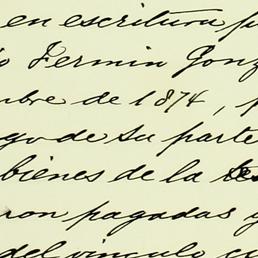 en escritura p
o Fermin Gonz
mbre de 1874, p
go de su parte
bienes de la tes
ron pagadas y
del vinculo cu